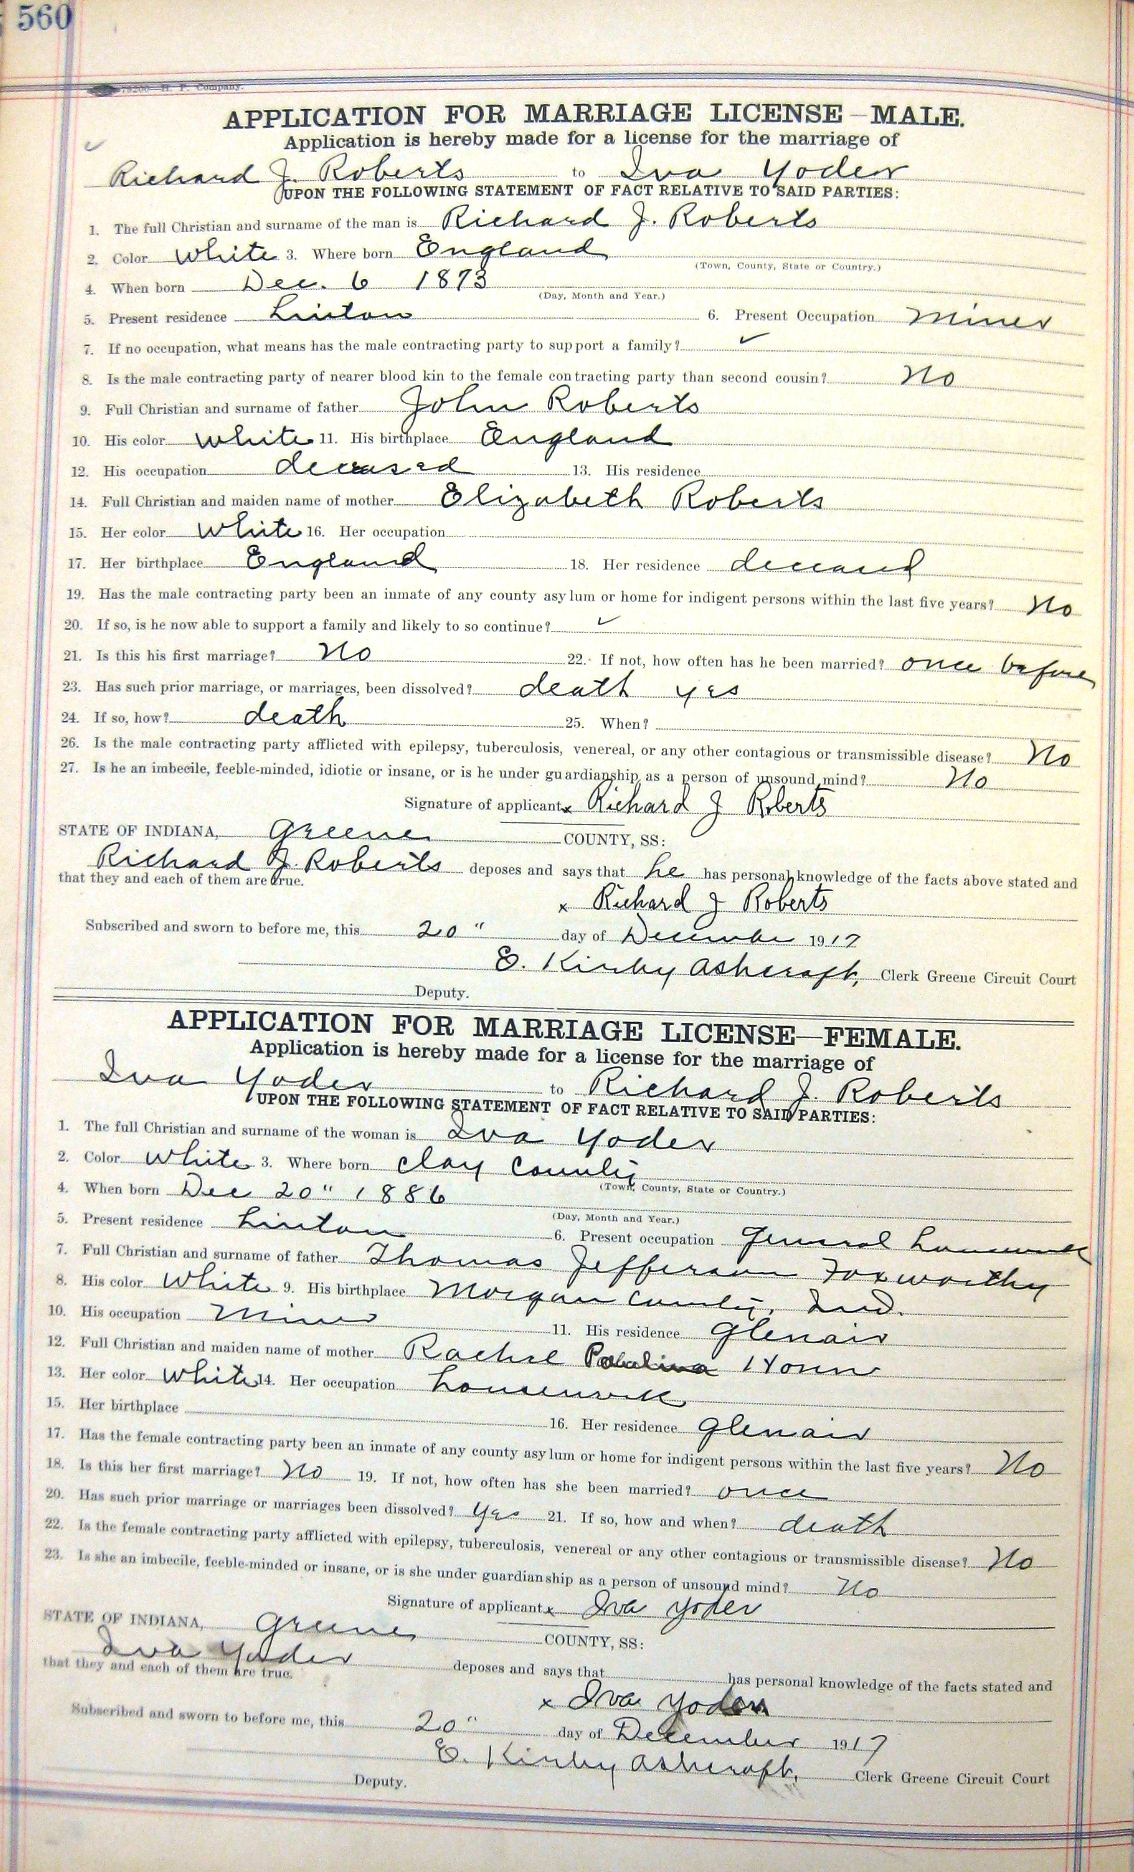 560
75200—H. P. Company.
APPLICATION FOR MARRIAGE LICENSE—MALE.
Application is hereby made for a license for the marriage of
Richard J. Roberts to Iva Yoder
UPON THE FOLLOWING STATEMENT OF FACT RELATIVE TO SAID PARTIES:
1. The full Christian and surname of the man is Richard J. Roberts
2. Color White 3. Where born England
(Town, County, State or Country.)
4. When born Dec. 6 1873
(Day, Month and Year.)
5. Present residence Linton 6. Present Occupation Miner
7. If no occupation, what means has the male contracting party to support a family? ✓
8. Is the male contracting party of nearer blood kin to the female contracting party than second cousin? No
9. Full Christian and surname of father John Roberts
10. His color White 11. His birthplace England
12. His occupation deceased 13. His residence
14. Full Christian and maiden name of mother Elizabeth Roberts
15. Her color White 16. Her occupation
17. Her birthplace England 18. Her residence deceased
19. Has the male contracting party been an inmate of any county asylum or home for indigent persons within the last five years? No
20. If so, is he now able to support a family and likely to so continue? ✓
21. Is this his first marriage? No 22. If not, how often has he been married? once before
23. Has such prior marriage, or marriages, been dissolved? death yes
24. If so, how? death 25. When?
26. Is the male contracting party afflicted with epilepsy, tuberculosis, venereal, or any other contagious or transmissible disease? No
27. Is he an imbecile, feeble-minded, idiotic or insane, or is he under guardianship as a person of unsound mind? No
Signature of applicant x Richard J Roberts
STATE OF INDIANA, Greene COUNTY, SS:
Richard J. Roberts deposes and says that he has personal knowledge of the facts above stated and
that they and each of them are true.
x Richard J Roberts
Subscribed and sworn to before me, this 20" day of December 1917
E. Kirby Ashcraft, Clerk Greene Circuit Court
Deputy.
APPLICATION FOR MARRIAGE LICENSE—FEMALE.
Application is hereby made for a license for the marriage of
Iva Yoder to Richard J. Roberts
UPON THE FOLLOWING STATEMENT OF FACT RELATIVE TO SAID PARTIES:
1. The full Christian and surname of the woman is Iva Yoder
2. Color White 3. Where born Clay County
(Town, County, State or Country.)
4. When born Dec 20" 1886
(Day, Month and Year.)
5. Present residence Linton 6. Present occupation General housework
7. Full Christian and surname of father Thomas Jefferson Foxworthy
8. His color White 9. His birthplace Morgan County, Ind.
10. His occupation Miner 11. His residence Glenair
12. Full Christian and maiden name of mother Rachel Horn
13. Her color White 14. Her occupation housework
15. Her birthplace 16. Her residence Glenair
17. Has the female contracting party been an inmate of any county asylum or home for indigent persons within the last five years? No
18. Is this her first marriage? No 19. If not, how often has she been married? once
20. Has such prior marriage or marriages been dissolved? Yes 21. If so, how and when? death
22. Is the female contracting party afflicted with epilepsy, tuberculosis, venereal or any other contagious or transmissible disease? No
23. Is she an imbecile, feeble-minded or insane, or is she under guardianship as a person of unsound mind? No
Signature of applicant x Iva Yoder
STATE OF INDIANA, Greene COUNTY, SS:
Iva Yoder deposes and says that has personal knowledge of the facts stated and
that they and each of them are true.
x Iva Yoder
Subscribed and sworn to before me, this 20" day of December 1917
E. Kirby Ashcraft, Clerk Greene Circuit Court
Deputy.